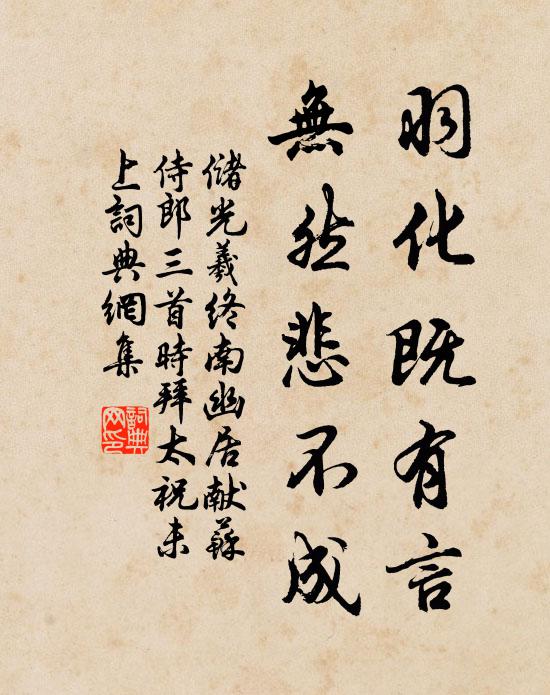 羽化既有言
無然悲不成
儲光羲終南幽居献蘇
侍郎三首時拜太祝未
上詞典網集
詞典网印